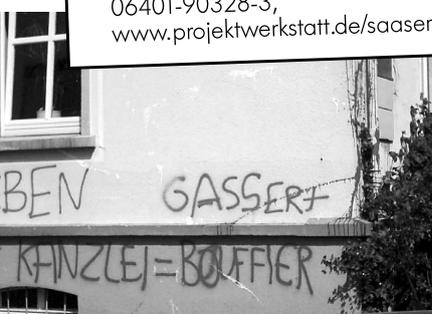 06401-90328-3,
www.projektwerkstatt.de/saasen
EBEN GASSERT
KANZLEI=BOUFFIER